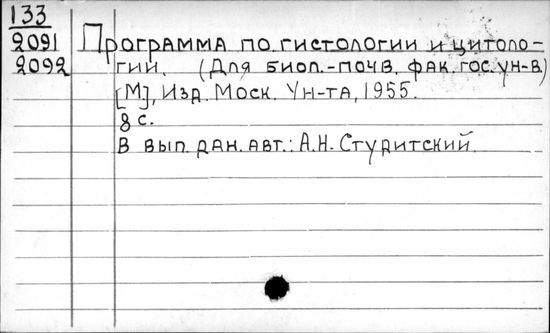 133
2091 Программа по гистологии и цитоло-
2092 гии. (Для биол.-почв. фак. гос. ун-в)
[М], Изд. Моск. Ун-та, 1955.
8 с.
В вып. дан. авт.: А.Н. Студитский.